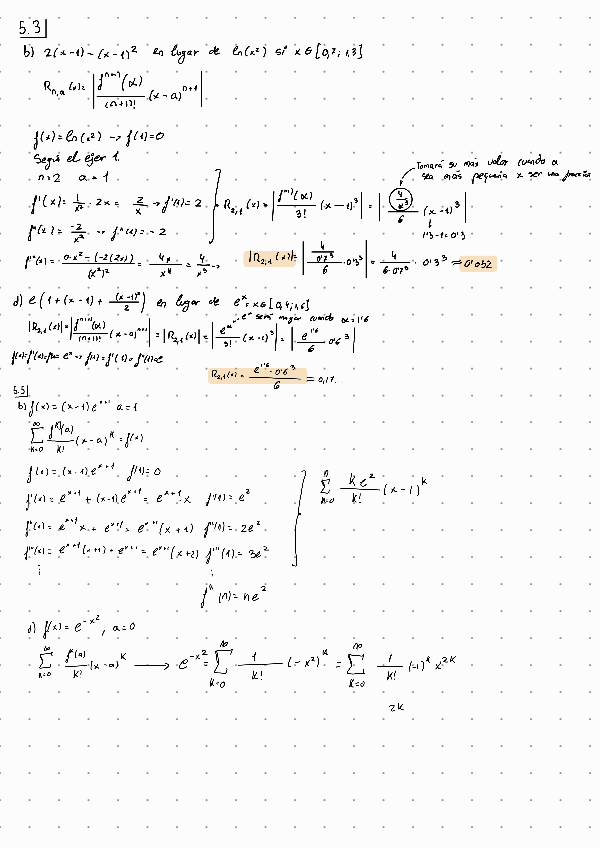 5.3
b) 2(x-1) - (x-1)² en lugar de ln(x²) si x∈[0,7; 1,3]
R_{n,a}(x) = | f^{n+1}(α) / (n+1)! · (x-a)^{n+1} |
f(x) = ln(x²) → f(1) = 0
Según el ejer 1.
n=2 a=1
f'(x) = 1/x² · 2x = 2/x → f'(1) = 2
f''(x) = -2/x² → f''(1) = -2
f'''(x) = 0·x² - (-2(2x)) / (x²)² = 4x/x⁴ = 4/x³ →
R_{2,1}(x) = | f^{n+1}(α) / 3! (x-1)³ | = | 4/x³ / 6 (x-1)³ |
Tomará su más valor cuando α
sea más pequeña x ser una fracción
1'3-1=0'3
|R_{2,1}(x)| = | 4/0'7³ / 6 · 0'3³ | = 4 / 6·0'7³ · 0'3³ ≈ 0'052
d) e(1+(x-1)+ (x-1)²/2) en lugar de eˣ x∈[0,4; 1,6]
eˣ será mayor cuando α=1'6
|R_{2,1}(x)| = | f^{n+1}(α) / (n+1)! (x-a)^{n+1} | = |R_{2,1}(x)| = | e^α / 3! (x-1)³ | = | e^{1'6} / 6 0'6³ |
f(x)=f'(x)=f''= eˣ → f(1)=f'(1)=f''(1)=e
R_{2,1}(x) = e^{1'6}·0'6³ / 6 = 0,17.
5.5
b) f(x) = (x-1)e^{x+1} a=1
∞ Σ k=0 f^k(a)/k! (x-a)^k = f(x)
f(x) = (x-1)e^{x+1} f(1)=0
f'(x) = e^{x+1} + (x-1)e^{x+1} = e^{x+1} x f'(1) = e²
f''(x) = e^{x+1} x + e^{x+1} = e^{x+1}(x+1) f''(1) = 2e²
f'''(x) = e^{x+1}(x+1) + e^{x+1} = e^{x+1}(x+2) f'''(1) = 3e²
n Σ k=0 k e²/k! (x-1)^k
⋮ ⋮
f^n(n) = ne²
d) f(x) = e^{-x²}, a=0
∞ Σ k=0 f^k(a)/k! (x-a)^k → e^{-x²} = ∞ Σ k=0 1/k! (-x²)^k = ∞ Σ k=0 1/k! (-1)^k x^{2k}
2k